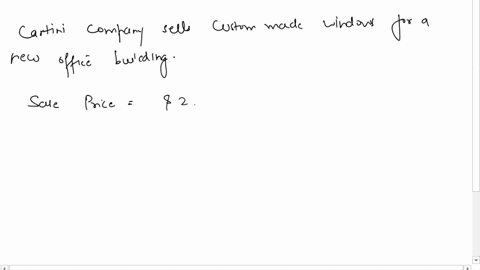 Cartini Company sells Custom made windows for a
new office building.
Sale Price = $ 2.